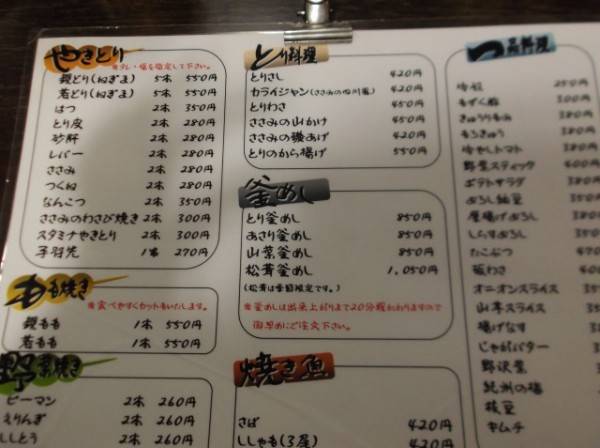 やきとり
※タレ・塩を指定して下さい。
親どり(ねぎま) 5本 550円
若どり(ねぎま) 5本 550円
はつ 2本 350円
とり皮 2本 280円
砂肝 2本 280円
レバー 2本 280円
ささみ 2本 280円
つくね 2本 280円
なんこつ 2本 350円
ささみのわさび焼き 2本 300円
スタミナやきとり 2本 300円
手羽先 1本 270円
もも焼き
※食べやすくカットもいたします。
親もも 1本 550円
若もも 1本 550円
野菜焼き
ピーマン 2本 260円
えりんぎ 2本 260円
ししとう 2本 260円
とり料理
とりさし 420円
カライジャン(ささみの四川風) 420円
とりわさ 450円
ささみの山かけ 450円
ささみの磯あげ 420円
とりのから揚げ 550円
釜めし
とり釜めし 850円
あさり釜めし 850円
山菜釜めし 850円
松茸釜めし 1,050円
(松茸は季節限定です。)
※釜めしは出来上がりまで20分程かかりますので
御早めにご注文下さい。
焼き魚
さば 420円
ししゃも(3尾) 420円
一品料理
冷奴 250円
もずく酢 300円
きゅうりもみ 380円
もろきゅう 380円
冷やしトマト 380円
野菜スティック 400円
ポテトサラダ
おろし納豆
厚揚げおろし
しらすおろし
たこぶつ
板わさ
オニオンスライス
山芋スライス
揚げなす
じゃがバター
野沢菜
紀州の梅
枝豆
キムチ